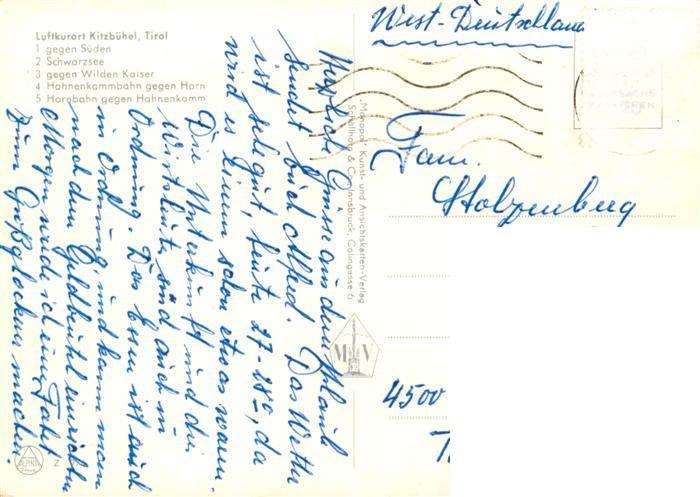 Luftkurort Kitzbühel, Tirol
1 gegen Süden
2 Schwarzsee
3 gegen Wilden Kaiser
4 Hahnenkammbahn gegen Horn
5 Hornbahn gegen Hahnenkamm
Herzliche Grüsse aus dem Urlaub
sendet Euch Alfred. Das Wetter
ist sehr gut, heute 27-28°, da
wird es einem schon etwas warm.
Die Unterkunft und die
Wirtsleute sind auch in
Ordnung. Das Essen ist auch
in Ordnung und kann man
nach dem Geldbeutel einrichten
Morgen werde ich eine Fahrt
zum Großglockner machen.
"Monopol" Kunst- und Ansichtskarten-Verlag
Schöllhorn & Co., Innsbruck, Colingasse 6
M V
Z
West-Deutschland
Fam.
Stolzenberg
4500